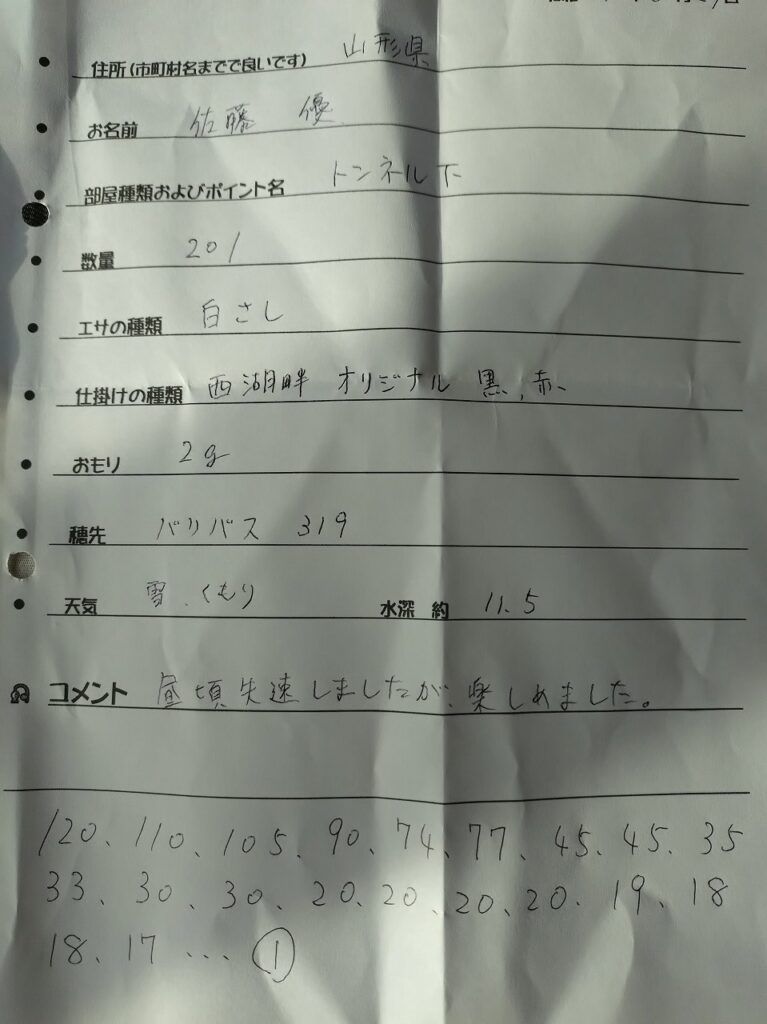 住所(市町村名までで良いです) 山形県
お名前 佐藤 優
部屋種類およびポイント名 トンネル下
数量 201
エサの種類 白さし
仕掛けの種類 西湖畔 オリジナル 黒、赤
おもり 2g
穂先 バリバス 319
天気 雪、くもり 水深 約 11.5
コメント 昼頃失速しましたが、楽しめました。
120、110、105、90、74、77、45、45、35
33、30、30、20、20、20、20、19、18
18、17 … ①